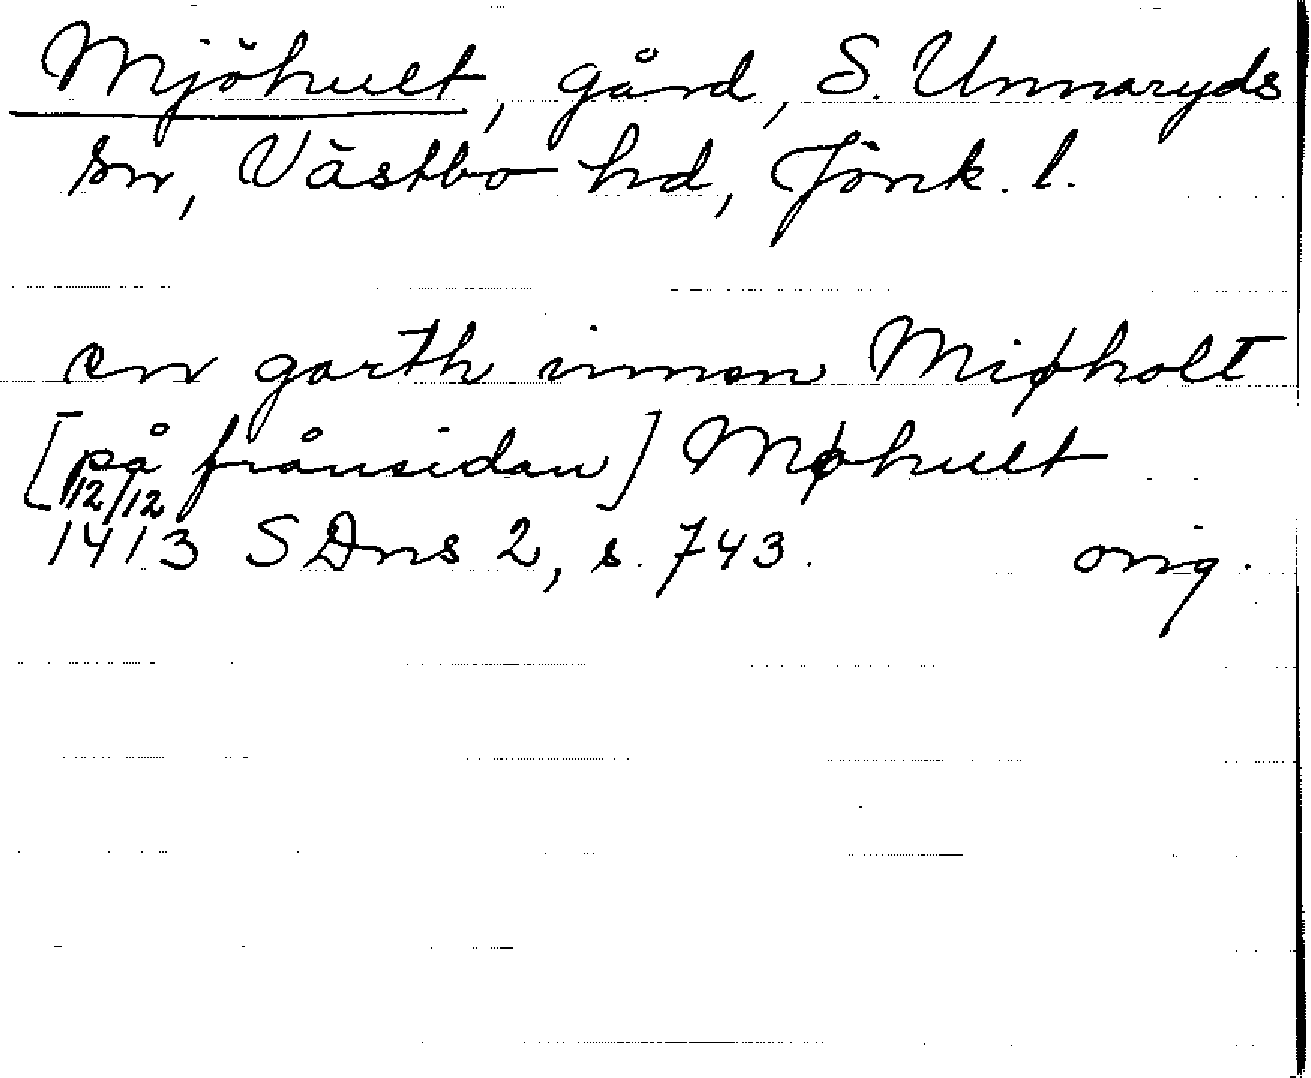 Mjöhult, gård, S. Unnaryds
sn, Västbo hd, Jönk. l.
en garth innan Miøholt
[på frånsidan] Møhult
12/12
1413 SDns 2, s. 743. orig.